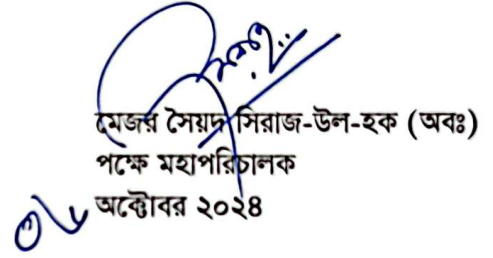 মেজর সৈয়দ সিরাজ-উল-হক (অবঃ)
পক্ষে মহাপরিচালক
অক্টোবর ২০২৪